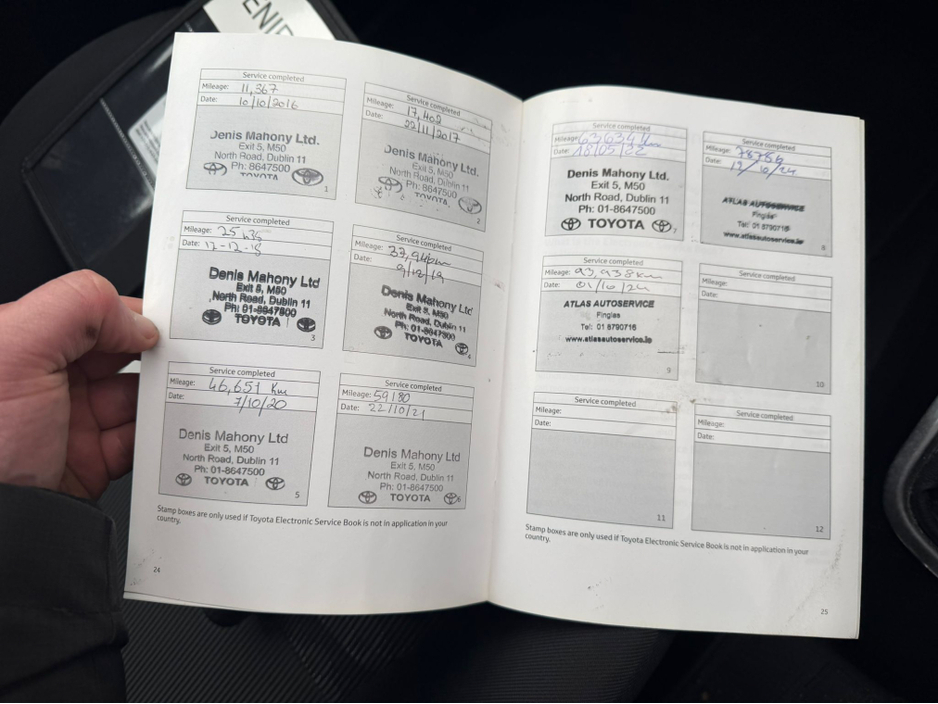 Service completed
Mileage: 11,367
Date: 10/10/2016
Denis Mahony Ltd.
Exit 5, M50
North Road, Dublin 11
Ph: 8647500
TOYOTA
1
Service completed
Mileage: 17,402
Date: 22/11/2017
Denis Mahony Ltd.
Exit 5, M50
North Road, Dublin 11
Ph: 8647500
TOYOTA
2
Service completed
Mileage:
Date: 12-12-18
Denis Mahony Ltd
Exit 5, M50
North Road, Dublin 11
Ph: 01-8647500
TOYOTA
3
Service completed
Mileage:
Date: 9/12/19
Denis Mahony Ltd
Exit 5, M50
North Road, Dublin 11
Ph: 01-8647500
TOYOTA
4
Service completed
Mileage: 46,651 Km
Date: 7/10/20
Denis Mahony Ltd
Exit 5, M50
North Road, Dublin 11
Ph: 01-8647500
TOYOTA
5
Service completed
Mileage: 59180
Date: 22/10/21
Denis Mahony Ltd
Exit 5, M50
North Road, Dublin 11
Ph: 01-8647500
TOYOTA
6
Stamp boxes are only used if Toyota Electronic Service Book is not in application in your
country.
24
Service completed
Mileage:
Date: 18/05/22
Denis Mahony Ltd.
Exit 5, M50
North Road, Dublin 11
Ph: 01-8647500
TOYOTA
7
Service completed
Mileage:
Date:
ATLAS AUTOSERVICE
Finglas
Tel: 01 8790716
www.atlasautoservice.ie
8
Service completed
Mileage: 93,938km
Date: 01/10/24
ATLAS AUTOSERVICE
Finglas
Tel: 01 8790716
www.atlasautoservice.ie
9
Service completed
Mileage:
Date:
10
Service completed
Mileage:
Date:
11
Service completed
Mileage:
Date:
12
Stamp boxes are only used if Toyota Electronic Service Book is not in application in your
country.
25